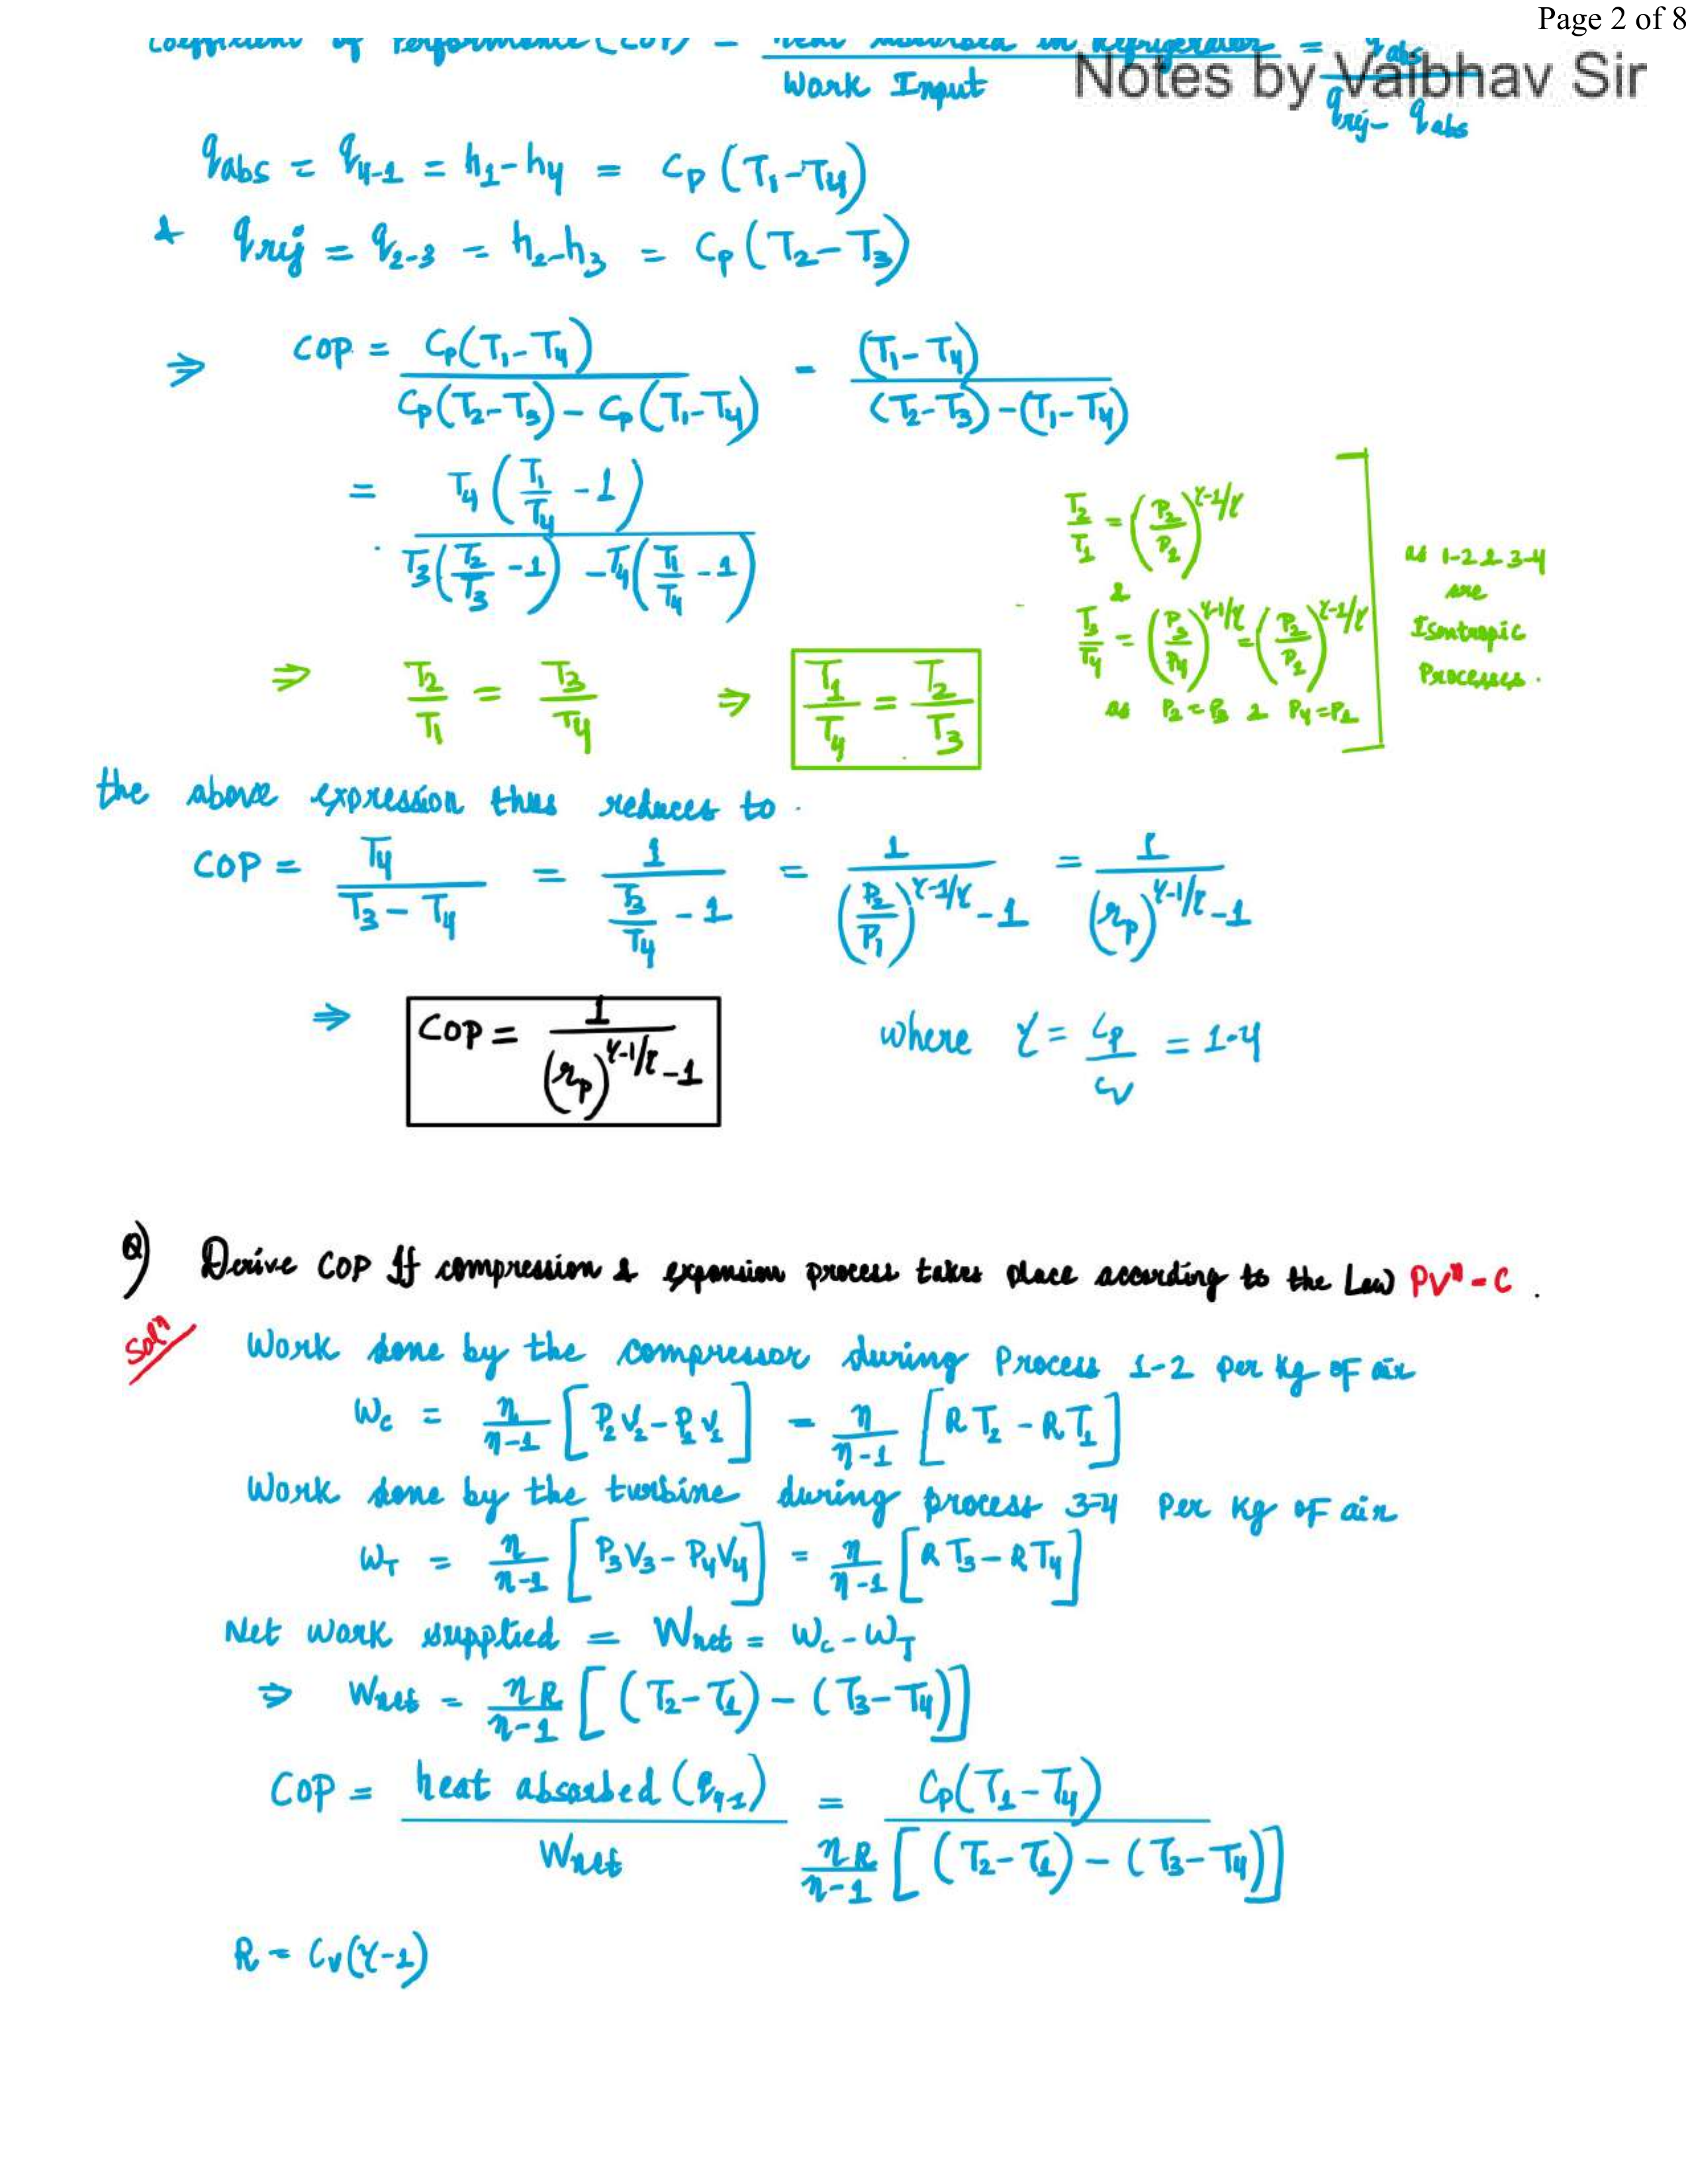 Page 2 of 8
Coefficient of Performance (COP) = heat absorbed in Refrigerator / Work Input = q_abs / (q_rej - q_abs)
Notes by Vaibhav Sir
q_abs = q_4-1 = h_1 - h_4 = C_p (T_1 - T_4)
& q_rej = q_2-3 = h_2 - h_3 = C_p (T_2 - T_3)
⇒ COP = C_p(T_1 - T_4) / (C_p(T_2 - T_3) - C_p(T_1 - T_4)) = (T_1 - T_4) / ((T_2 - T_3) - (T_1 - T_4))
= T_4 (T_1/T_4 - 1) / (T_3 (T_2/T_3 - 1) - T_4 (T_1/T_4 - 1))
T_2/T_1 = (P_2/P_1)^γ-1/γ
&
T_3/T_4 = (P_3/P_4)^γ-1/γ = (P_2/P_1)^γ-1/γ
as P_2 = P_3 & P_4 = P_1
as 1-2 & 3-4
are
Isentropic
Processes.
⇒ T_2/T_1 = T_3/T_4 ⇒ T_1/T_4 = T_2/T_3
the above expression thus reduces to
COP = T_4 / (T_3 - T_4) = 1 / (T_3/T_4 - 1) = 1 / ((P_2/P_1)^γ-1/γ - 1) = 1 / ((r_p)^γ-1/γ - 1)
⇒ COP = 1 / ((r_p)^γ-1/γ - 1) where γ = C_p/C_v = 1.4
Q) Derive COP If compression & expansion process takes place according to the Law PV^n = C .
Sol^n Work done by the compressor during Process 1-2 per kg of air
W_c = n/(n-1) [P_2 V_2 - P_1 V_1] = n/(n-1) [R T_2 - R T_1]
Work done by the turbine during process 3-4 Per kg of air
W_T = n/(n-1) [P_3 V_3 - P_4 V_4] = n/(n-1) [R T_3 - R T_4]
Net work supplied = W_net = W_c - W_T
⇒ W_net = nR/(n-1) [(T_2 - T_1) - (T_3 - T_4)]
COP = heat absorbed (q_4-1) / W_net = C_p(T_1 - T_4) / (nR/(n-1) [(T_2 - T_1) - (T_3 - T_4)])
R = C_v(γ-1)